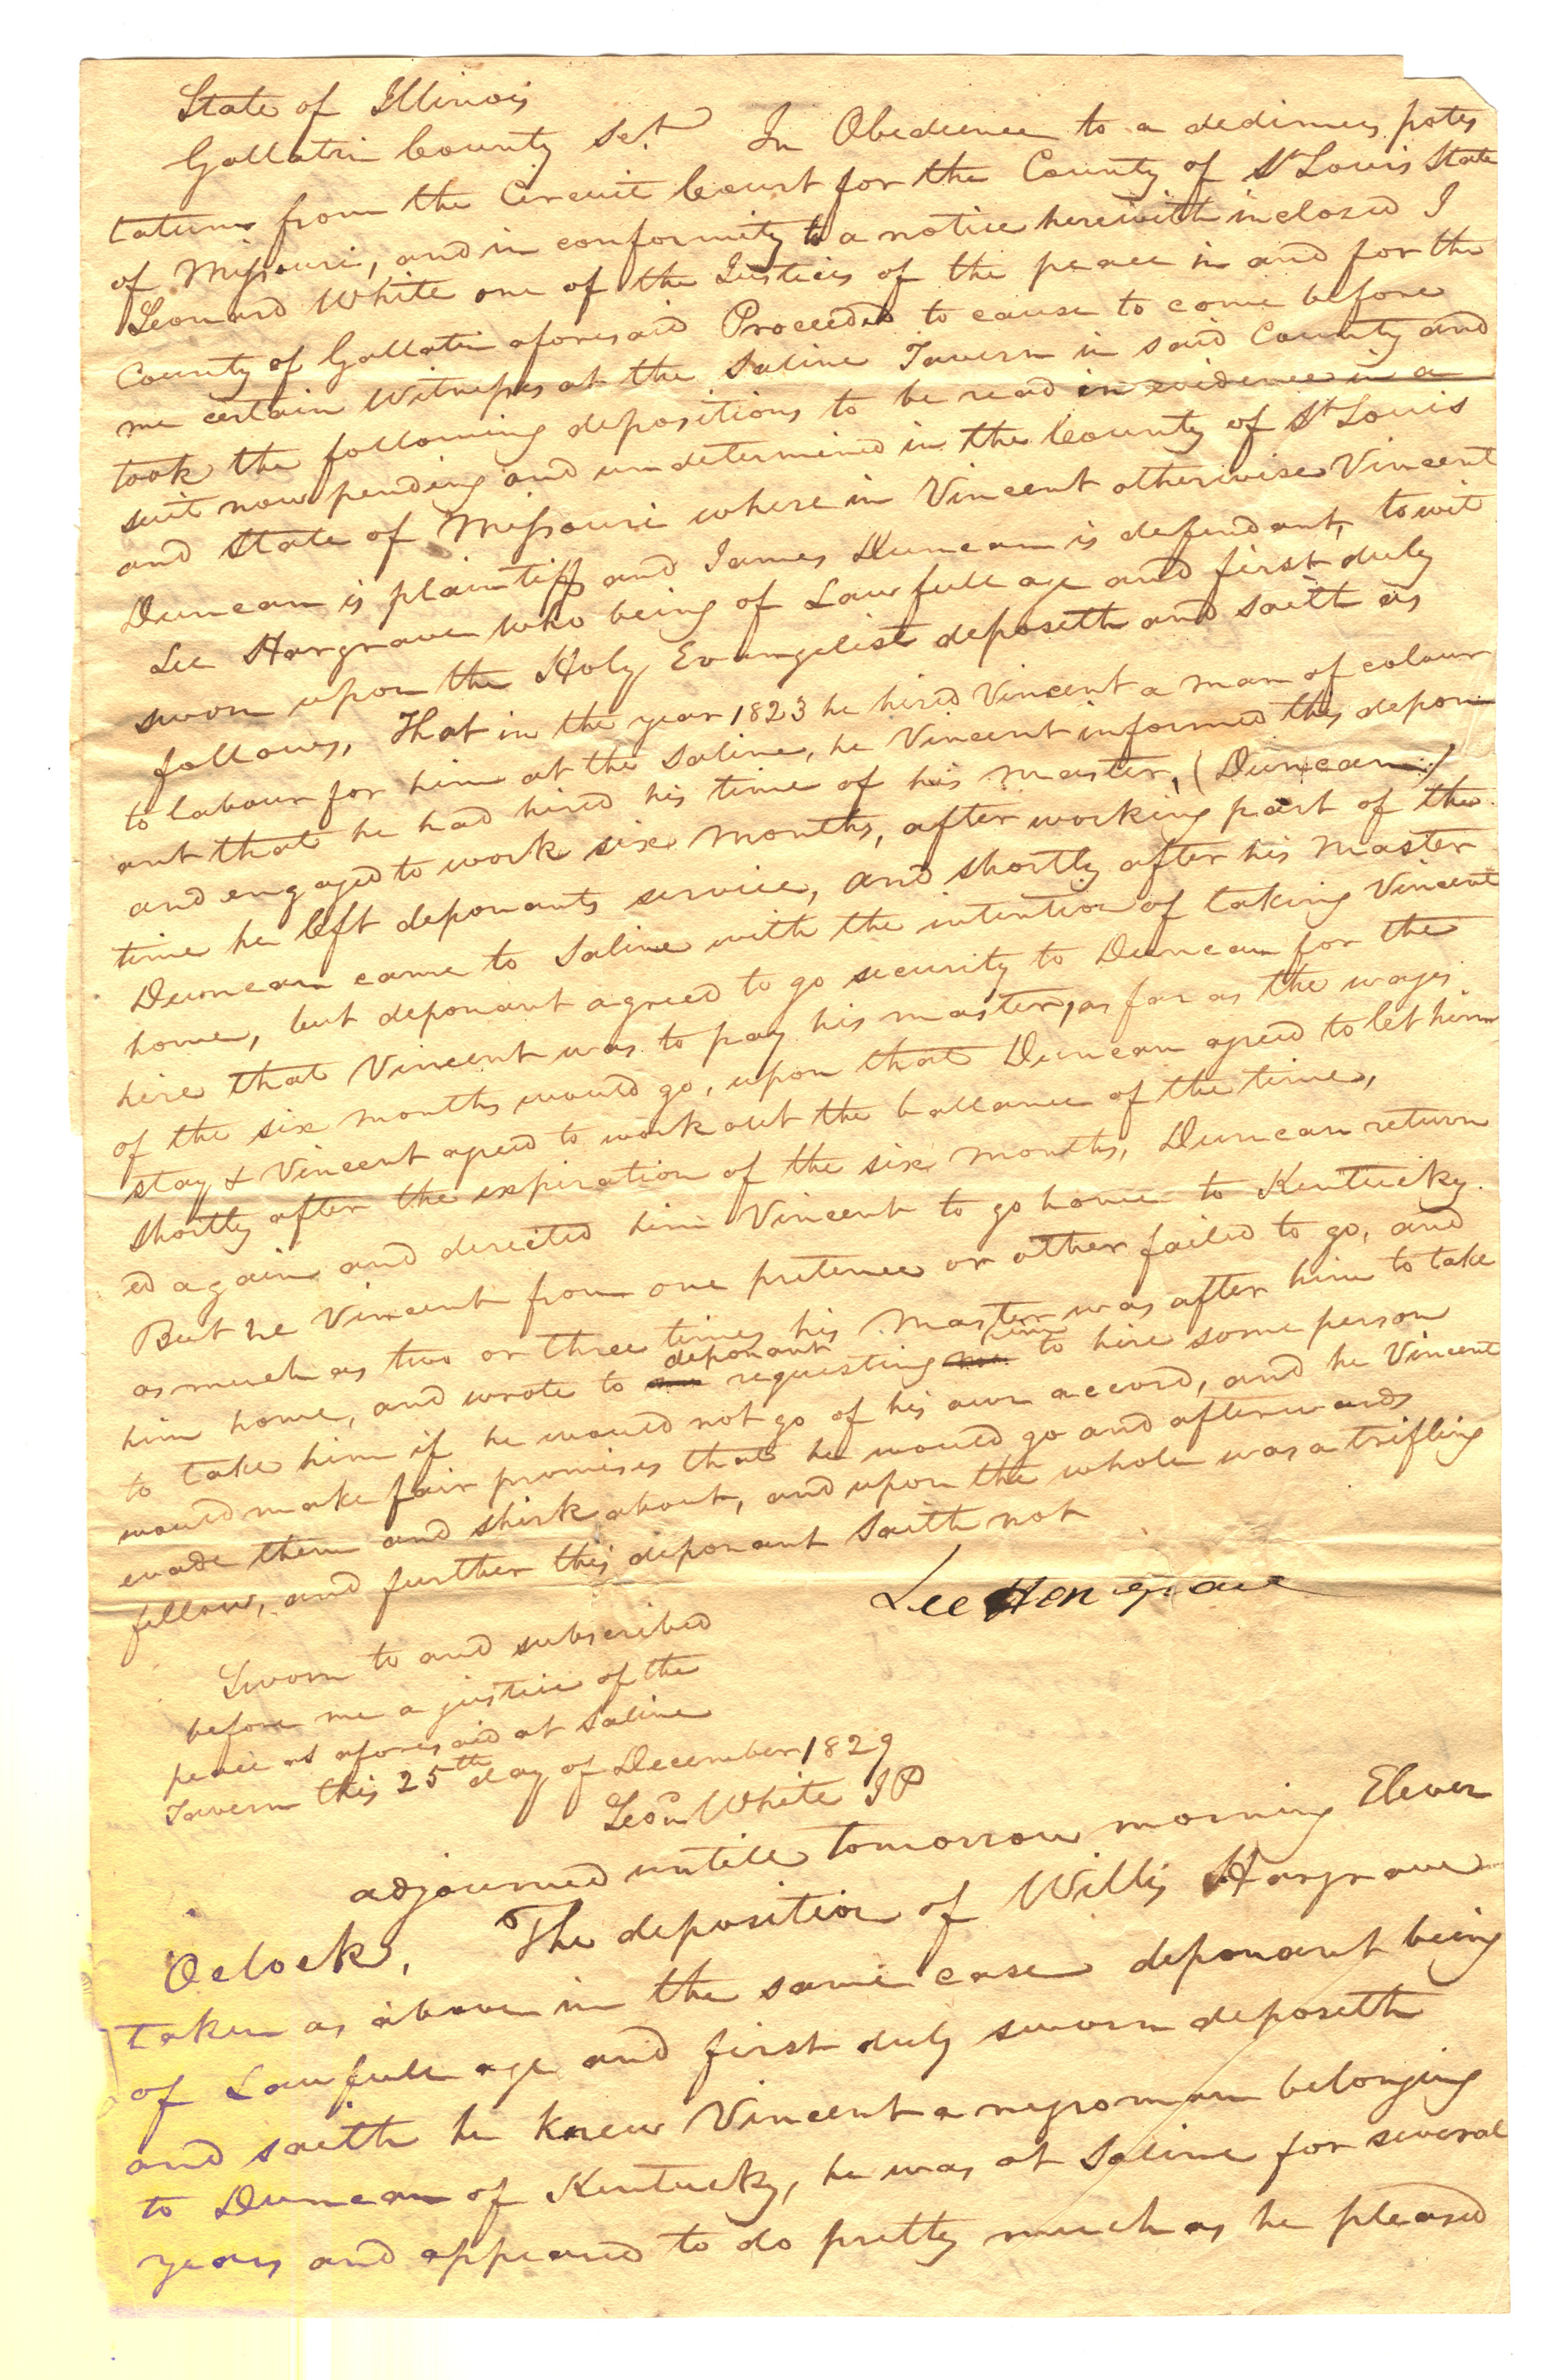 State of Illinois
Gallatin County Sct. In Obedience to a dedimus potes
tatum from the Circuit Court for the County of St Louis State
of Missouri, and in conformity to a notice herewith inclosed I
Leonard White one of the Justices of the peace in and for the
County of Gallatin aforesaid Proceeded to cause to come before
me certain Witnesses at the Saline Tavern in said County and
took the following depositions to be read in evidence in a
suit now pending and undetermined in the County of St Louis
and State of Missouri where in Vincent otherwise Vincent
Duncan is plaintiff and James Duncan is defendant, towit
Lee Hargrave who being of Lawfull age and first duly
sworn upon the Holy Evangelist deposeth and saith as
follows, That in the year 1823 he hired Vincent a man of colour
to labour for him at the Saline, he Vincent informed this depon
ant that he had hired his time of his master, (Duncan)
and engaged to work six months, after working part of the
time he left deponants service, and shortly after his master
Duncan came to Saline with the intention of taking Vincent
home, but deponant agreed to go security to Duncan for the
hire that Vincent was to pay his master, as far as the wages
of the six months would go, upon that Duncan agreed to let him
stay & Vincent agreed to work out the ballance of the time,
Shortly after the expiration of the six months, Duncan return
ed again and directed him Vincent to go home to Kentucky.
But he Vincent from one pretence or other failed to go, and
as much as two or three times his master was after him to take
him home, and wrote to deponant requesting him to hire some person
to take him if he would not go of his own accord, and he Vincent
would make fair promises that he would go and afterwards
evade them and shirk about, and upon the whole was a trifling
fellow, and further this deponant Saith not
Lee Hargrave
Sworn to and subscribed
before me a justice of the
peace as aforesaid at Saline
Tavern this 25th day of December 1829
Leod White JP
adjourned untill tomorrow morning Eleven
Oclock, The deposition of Willis Hargrave
taken as above in the same case deponant being
of Lawfull age and first duly sworn deposeth
and saith he knew Vincent a negroman belonging
to Duncan of Kentucky, he was at Saline for several
years and appeared to do pretty much as he pleased